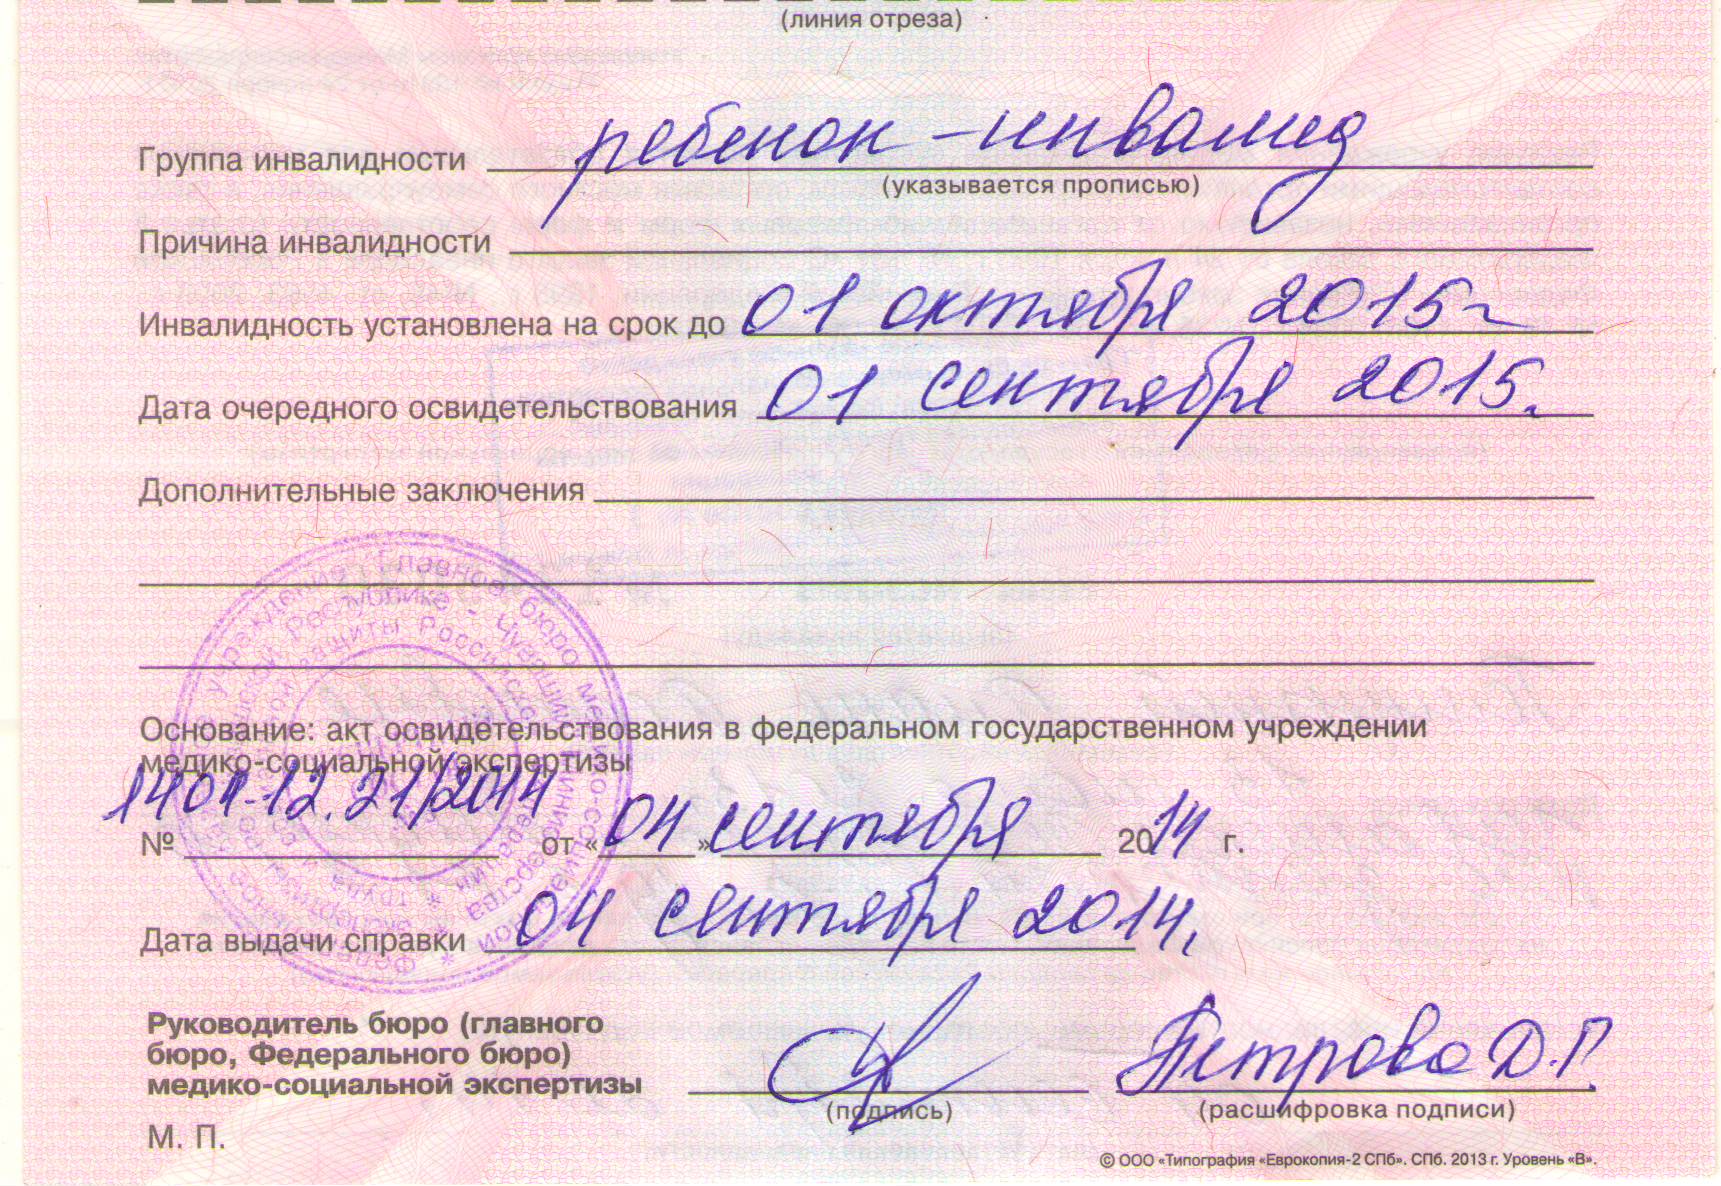 (линия отреза)
Группа инвалидности ребенок - инвалид
(указывается прописью)
Причина инвалидности
Инвалидность установлена на срок до 01 октября 2015 г
Дата очередного освидетельствования 01 сентября 2015.
Дополнительные заключения
Основание: акт освидетельствования в федеральном государственном учреждении
медико-социальной экспертизы
№ 1401.12.21/2014 от «04» сентября 2014 г.
Дата выдачи справки 04 сентября 2014.
Руководитель бюро (главного
бюро, Федерального бюро)
медико-социальной экспертизы Петрова Д.Г.
(подпись) (расшифровка подписи)
М. П.
© ООО «Типография «Еврокопия-2 СПб». СПб. 2013 г. Уровень «В».